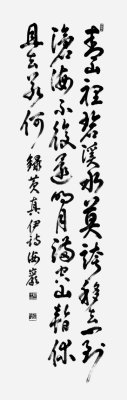 青山裡碧溪水莫誇移去一到
滄海不復還明月滿空山暫休
且去若何 錄黃真伊詩 海巖